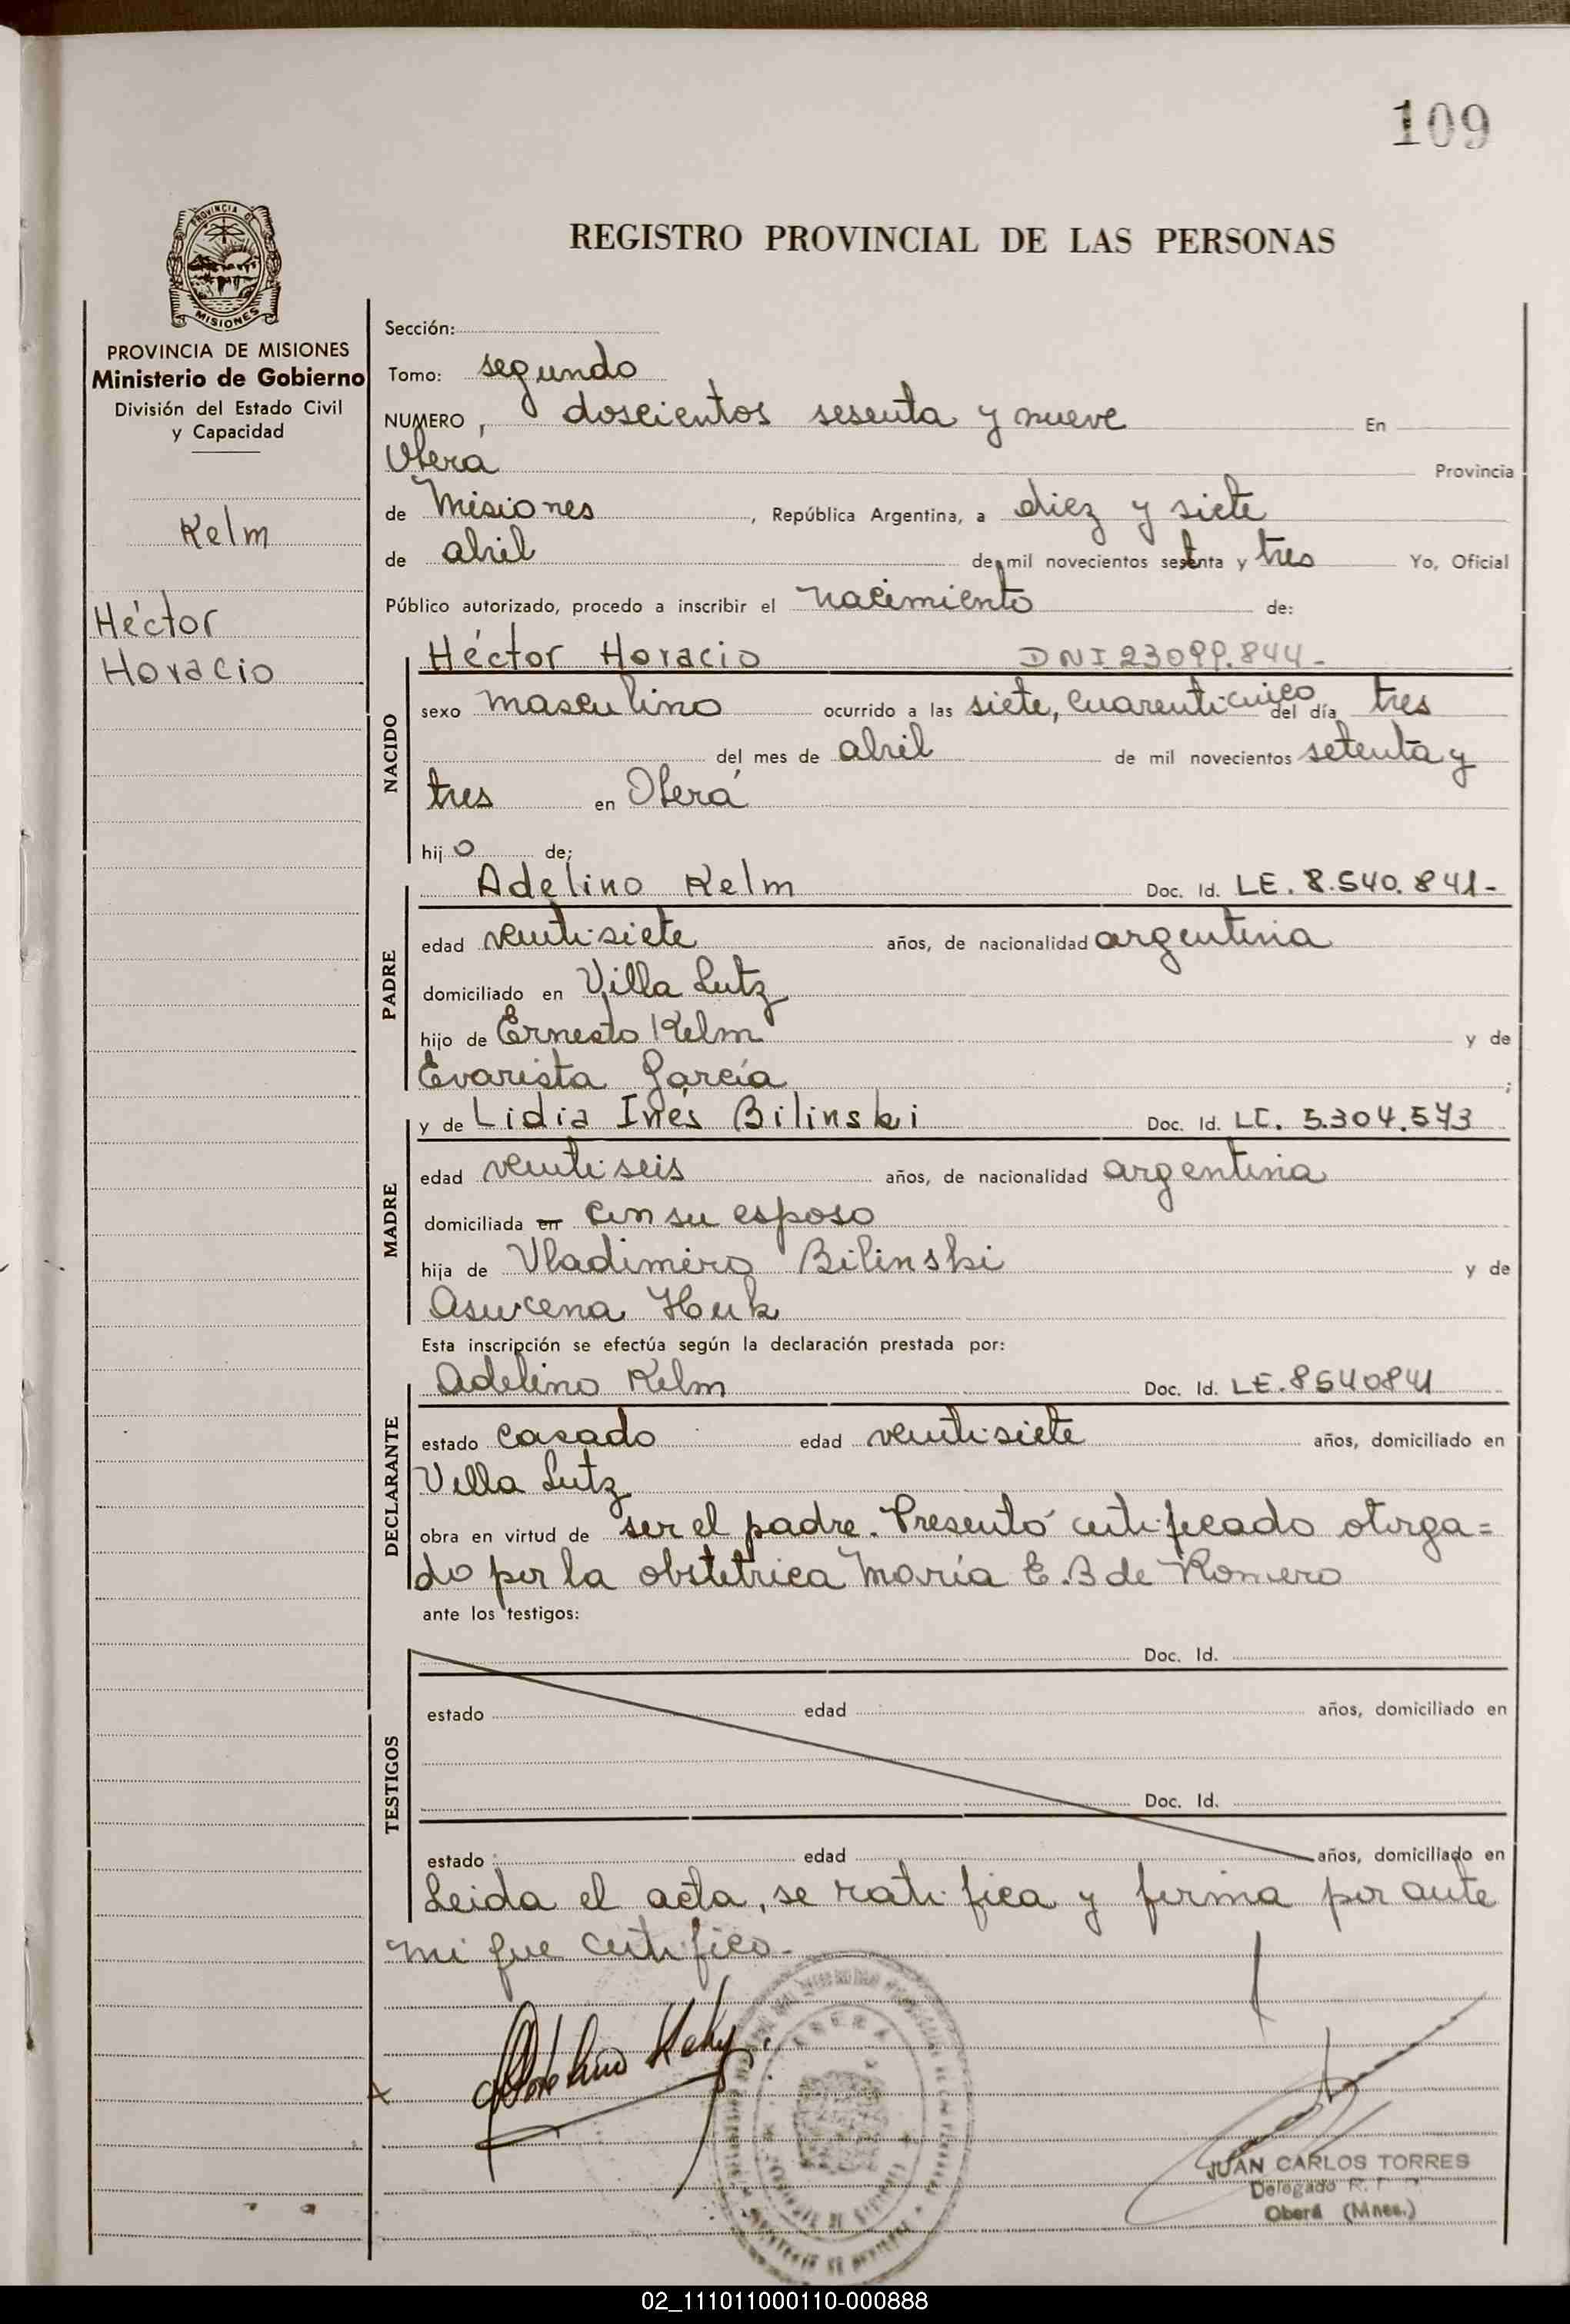 109
PROVINCIA DE
MISIONES
REGISTRO PROVINCIAL DE LAS PERSONAS
PROVINCIA DE MISIONES
Ministerio de Gobierno
División del Estado Civil
y Capacidad
Kelm
Héctor
Horacio
Sección:
Tomo: segundo
NUMERO, doscientos sesenta y nueve En
Oberá Provincia
de Misiones, República Argentina, a diez y siete
de abril de mil novecientos setenta y tres Yo, Oficial
Público autorizado, procedo a inscribir el nacimiento de:
NACIDO
Héctor Horacio DNI 23099.844-
sexo masculino ocurrido a las siete, cuarenticuico del día tres
del mes de abril de mil novecientos setenta y
tres en Oberá
hijo de;
PADRE
Adelino Kelm Doc. Id. LE. 8.540.841-
edad ventisiete años, de nacionalidad argentina
domiciliado en Villa Lutz
hijo de Ernesto Kelm y de
Evarista García;
MADRE
y de Lidia Inés Bilinski Doc. Id. LC. 5.304.573
edad ventiseis años, de nacionalidad argentina
domiciliada en con su esposo
hija de Vladimiro Bilinski y de
Asucena Huk
Esta inscripción se efectúa según la declaración prestada por:
DECLARANTE
Adelino Kelm Doc. Id. LE. 8540841
estado casado edad ventisiete años, domiciliado en
Villa Lutz
obra en virtud de ser el padre. Presentó certificado otorga=
do por la obstetrica María E. B de Romero
ante los testigos:
TESTIGOS
Doc. Id.
estado edad años, domiciliado en
Doc. Id.
estado edad años, domiciliado en
Leida el acta, se ratifica y firma por ante
mi que certifico-
JUAN CARLOS TORRES
Delegado R.
Oberá (Mnes.)
02_111011000110-000888